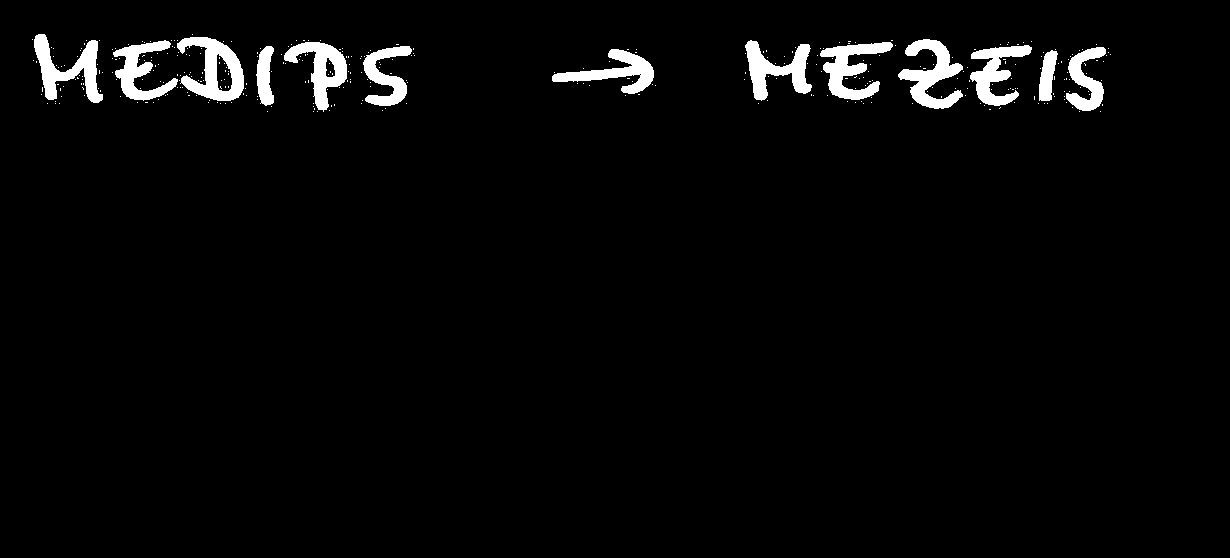 MEDIPS → MEZEIS